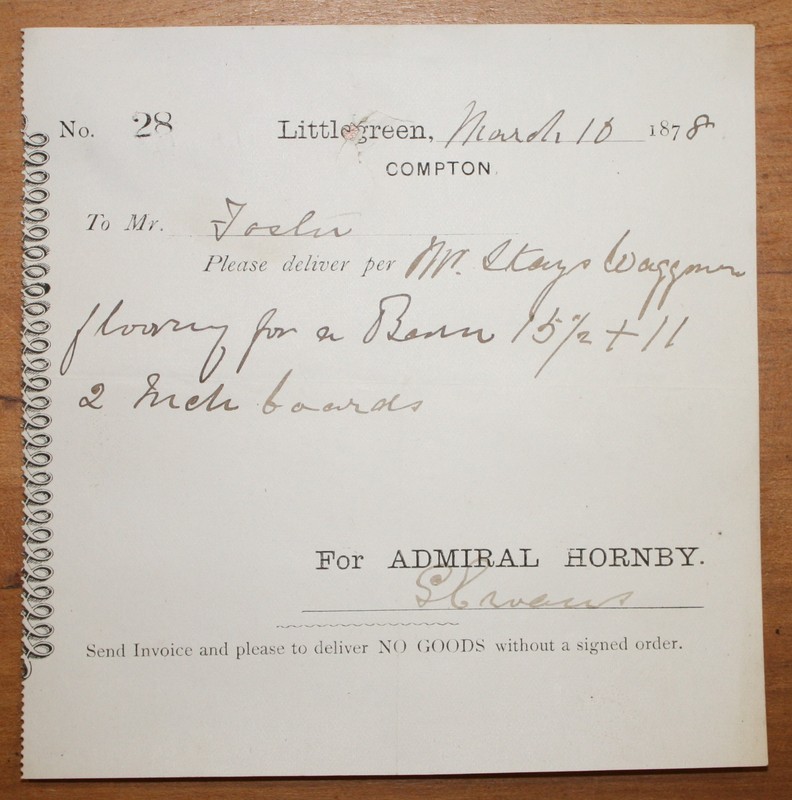 No. 28
Littlegreen, March 10 1878
COMPTON.
To Mr. Foster
Please deliver per Mr. Stays Waggoner
flooring for a Barn 15/2 + 11
2 Inch boards
For ADMIRAL HORNBY.
Send Invoice and please to deliver NO GOODS without a signed order.